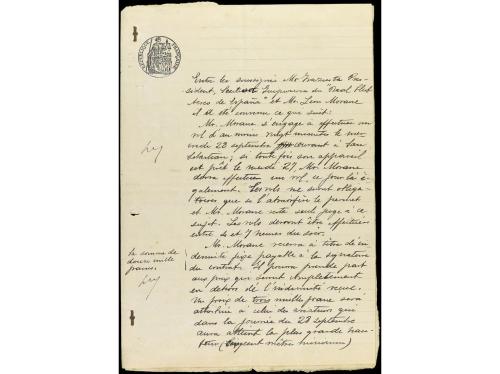 REPUBLIQUE FRANCAISE
Entre les soussignés Mr. Pré-
sident, du "Real
Club de España" et Mr. Leon Morane
il a été convenu ce que suit:
Mr. Morane s'engage a effectuer un
vol d'au moins vingt minutes le mer-
credi 28 septembre devant a San
Sebastian; si toute fois son appareil
est prêt le mardi 27, Mr. Morane
devra effectuer un vol ce jour là é-
galement. Les vols ne seront obliga-
toires que si l'atmosfère le permet
et Mr. Morane reste seul juge à ce
sujet. Les vols devront être effectués
entre 4 et 7 heures du soir.
Mr. Morane recevra à titre d'in-
demnité fixe payable a la signature
du contrat. Il pourra prendre part
aux prix que seront
en dehors de l'indemnité reçue.
Un prix de trois mille francs sera
attribué a celui des aviateurs que
dans la journée du 28 septembre
aura atteint la plus grande hau-
teur (cinq cent mètres minimum)
la somme de
douze mille
francs.